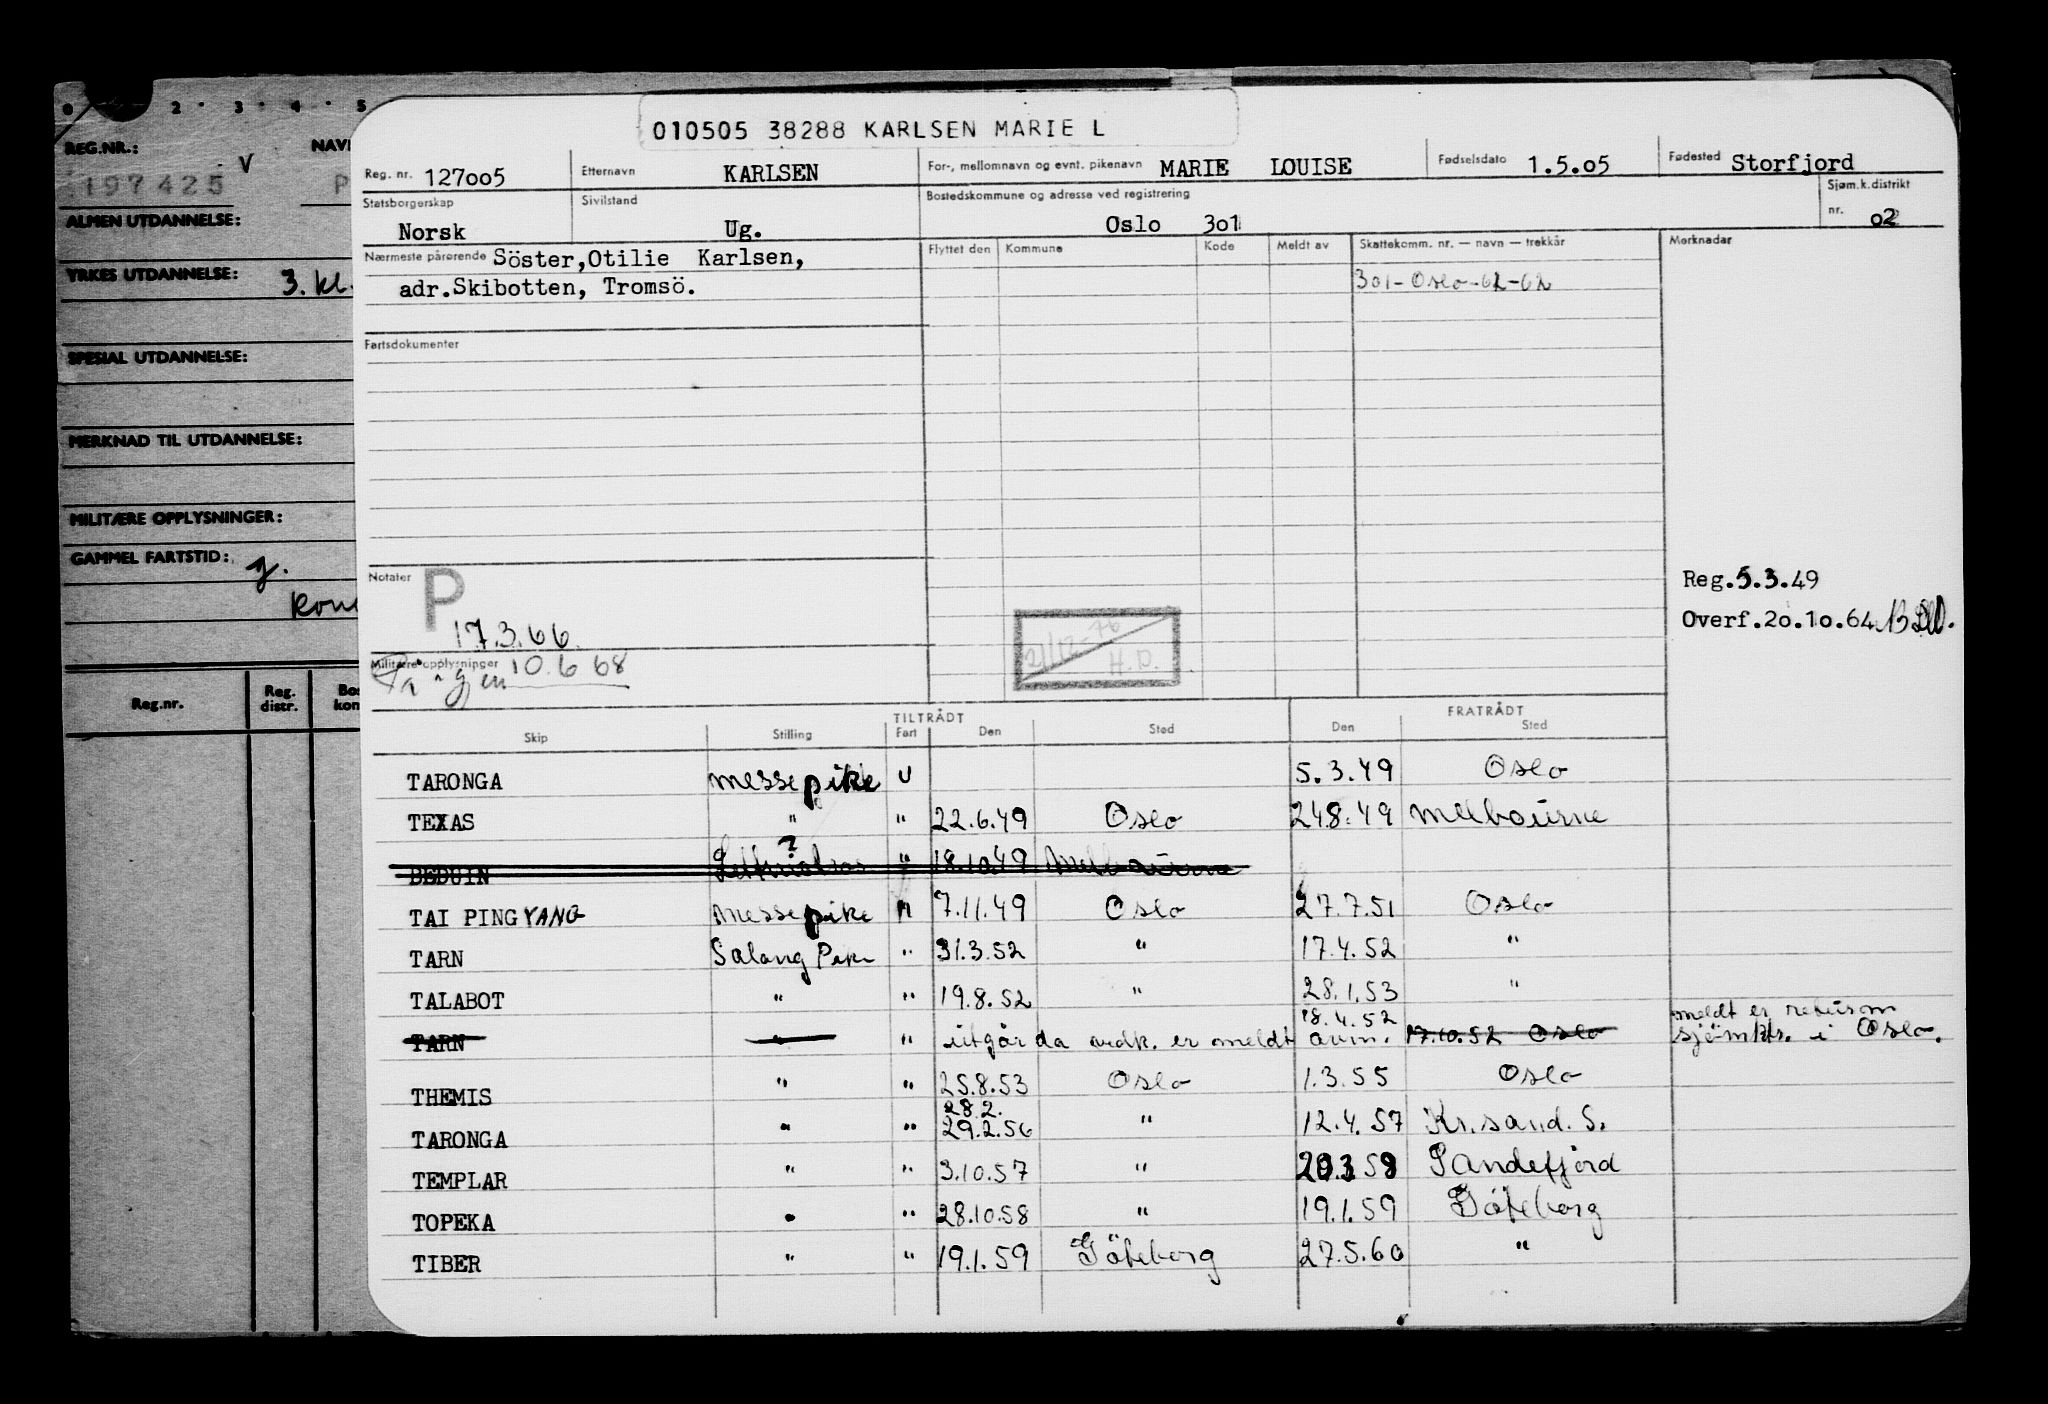 0 2 3 4 5
REG.NR.: V NAV
197425 P
ALMEN UTDANNELSE:
YRKES UTDANNELSE: 3. kl.
SPESIAL UTDANNELSE:
MERKNAD TIL UTDANNELSE:
MILITÆRE OPPLYSNINGER:
GAMMEL FARTSTID: J.
Kon
Reg.nr. Reg. distr. Bos kon
010505 38288 KARLSEN MARIE L
Reg. nr. 127005 Etternavn KARLSEN For-, mellomnavn og evnt. pikenavn MARIE LOUISE Fødselsdato 1.5.05 Fødested Storfjord
Statsborgerskap Norsk Sivilstand Ug. Bostedskommune og adresse ved registrering Oslo 301 Sjøm.k.distrikt nr. 02
Nærmeste pårørende Söster,Otilie Karlsen, Flyttet den Kommune Kode Meldt av Skattekomm. nr. — navn — trekkår Merknader
adr.Skibotten, Tromsö. 301-Oslo-62-62
Fartsdokumenter
Notater P
17.3.66.
Militære opplysninger 10.6 68
21/12-76
H.D.
Reg.5.3.49
Overf.20.10.64
TILTRÅDT FRATRÅDT
Skip Stilling Fart Den Sted Den Sted
TARONGA messepike U 5.3.49 Oslo
TEXAS " " 22.6.49 Oslo 24.8.49 Melbourne
?
BEDUIN " 18.10.49 Melbourne
TAI PINGYANG messepike " 7.11.49 Oslo 27.7.51 Oslo
TARN Salong Pike " 31.3.52 " 17.4.52 "
TALABOT " " 19.8.52 " 28.1.53 "
18.4.52 meldt er retur om
TARN " " utgår da vedk. er meldt avm. 17.10.52 Oslo sjömktr. i Oslo.
THEMIS " " 25.8.53 Oslo 1.3.55 Oslo
28.2.
TARONGA " " 29.2.56 " 12.4.57 Kr.sand. S.
TEMPLAR " " 3.10.57 " Sandefjord
TOPEKA " " 28.10.58 " 19.1.59 Göteborg
TIBER " " 19.1.59 Göteborg 27.5.60 "